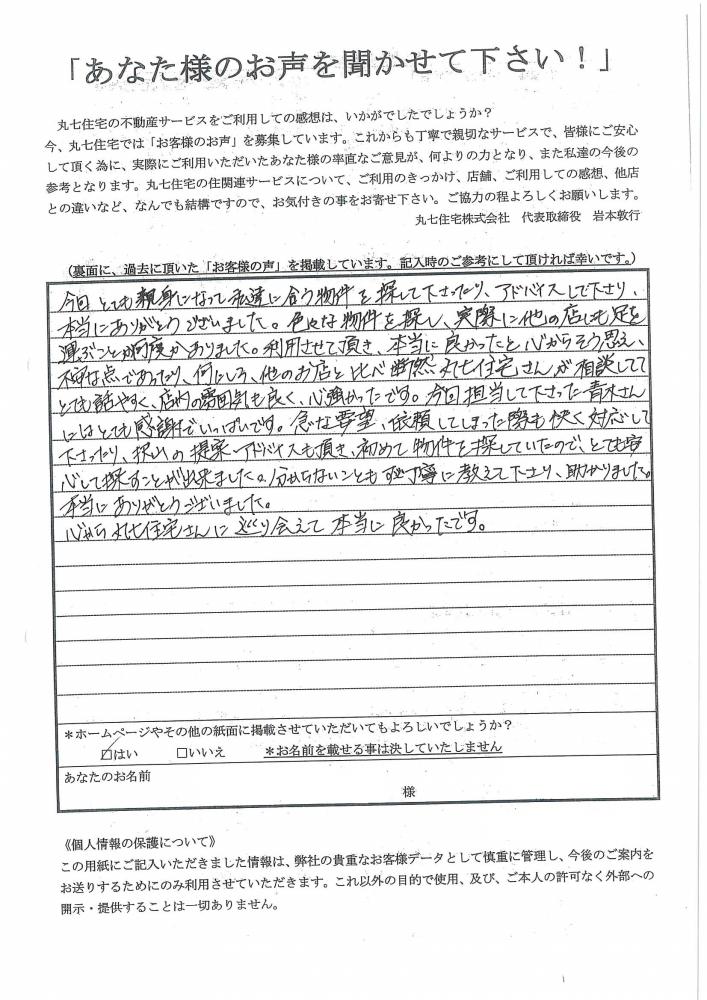 「あなた様のお声を聞かせて下さい！」
丸七住宅の不動産サービスをご利用しての感想は、いかがでしたでしょうか？
今、丸七住宅では「お客様のお声」を募集しています。これからも丁寧で親切なサービスで、皆様にご安心
して頂く為に、実際にご利用いただいたあなた様の率直なご意見が、何よりの力となり、また私達の今後の
参考となります。丸七住宅の住関連サービスについて、ご利用のきっかけ、店舗、ご利用しての感想、他店
との違いなど、なんでも結構ですので、お気付きの事をお寄せ下さい。ご協力の程よろしくお願いします。
丸七住宅株式会社　代表取締役　岩本敦行
（裏面に、過去に頂いた「お客様の声」を掲載しています。記入時のご参考にして頂ければ幸いです。）
今回とても親身になって私達に合う物件を探して下さったり、アドバイスして下さり、
本当にありがとうございました。色々な物件を探し、実際に他の店にも足を
運ぶことが何度かありました。利用させて頂き、本当に良かったと心からそう思え、
不安な点であったり、何にしろ、他のお店と比べ断然丸七住宅さんが相談してて
とても話やすく、店内の雰囲気も良く、心強かったです。今回担当して下さった青木さん
にはとても感謝でいっぱいです。急な要望、依頼してしまった際も快く対応して
下さったり、沢山の提案・アドバイスも頂き、初めて物件を探していたので、とても安
心して探すことが出来ました。分からないことも丁寧に教えて下さり、助かりました。
本当にありがとうございました。
心から丸七住宅さんに巡り会えて本当に良かったです。
＊ホームページやその他の紙面に掲載させていただいてもよろしいでしょうか？
☑はい　□いいえ　＊お名前を載せる事は決していたしません
あなたのお名前
様
《個人情報の保護について》
この用紙にご記入いただきました情報は、弊社の貴重なお客様データとして慎重に管理し、今後のご案内を
お送りするためにのみ利用させていただきます。これ以外の目的で使用、及び、ご本人の許可なく外部への
開示・提供することは一切ありません。